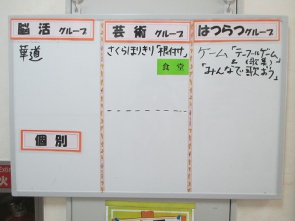 脳活グループ
華道
個別
芸術グループ
さくらほりきり「根付け」
食堂
はつらつグループ
ゲーム「テーブルゲーム」
「みんなで歌おう」
火